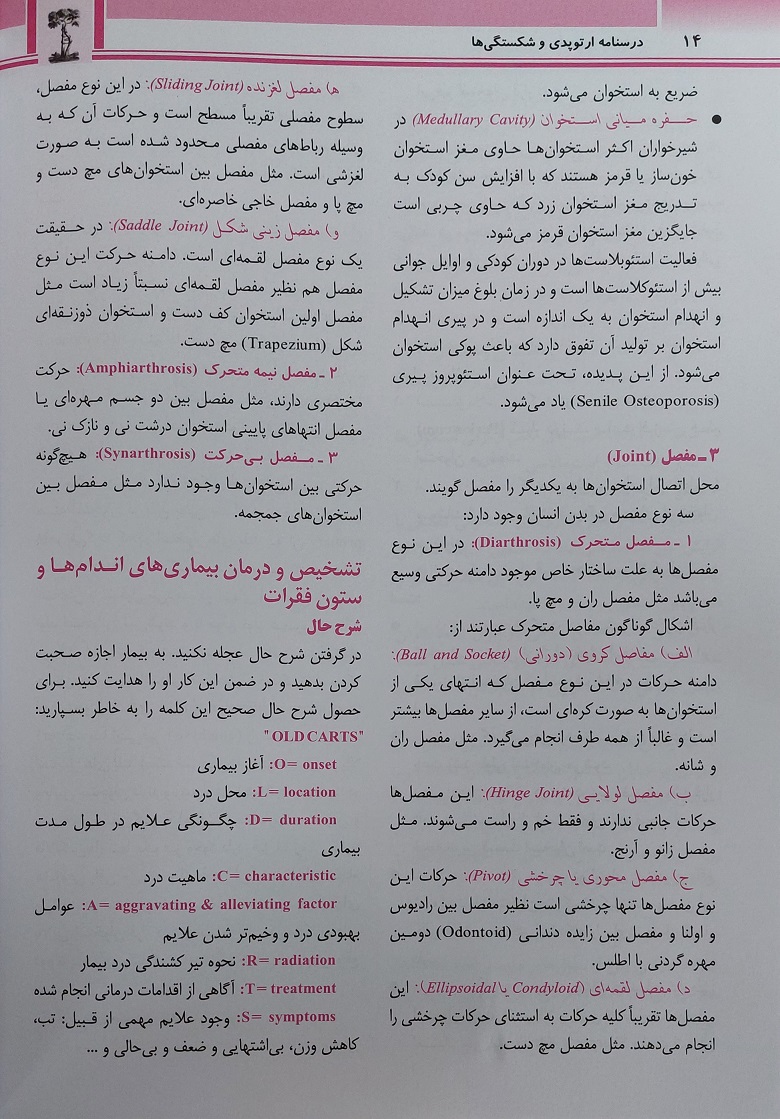 ۱۴ درسنامه ارتوپدی و شکستگی‌ها
ضریع به استخوان می‌شود.
● حفره میانی استخوان (Medullary Cavity) در
شیرخواران اکثر استخوان‌ها حاوی مغز استخوان
خون‌ساز یا قرمز هستند که با افزایش سن کودک به
تدریج مغز استخوان زرد که حاوی چربی است
جایگزین مغز استخوان قرمز می‌شود.
فعالیت استئوبلاست‌ها در دوران کودکی و اوایل جوانی
بیش از استئوکلاست‌ها است و در زمان بلوغ میزان تشکیل
و انهدام استخوان به یک اندازه است و در پیری انهدام
استخوان بر تولید آن تفوق دارد که باعث پوکی استخوان
می‌شود. از این پدیده، تحت عنوان استئوپروز پیری
(Senile Osteoporosis) یاد می‌شود.
۳ـ مفصل (Joint)
محل اتصال استخوان‌ها به یکدیگر را مفصل گویند.
سه نوع مفصل در بدن انسان وجود دارد:
۱ ـ مفصل متحرک (Diarthrosis): در این نوع
مفصل‌ها به علت ساختار خاص موجود دامنه حرکتی وسیع
می‌باشد مثل مفصل ران و مچ پا.
اشکال گوناگون مفاصل متحرک عبارتند از:
الف) مفاصل کروی (دورانی) (Ball and Socket):
دامنه حرکات در این نوع مفصل که انتهای یکی از
استخوان‌ها به صورت کره‌ای است، از سایر مفصل‌ها بیشتر
است و غالباً از همه طرف انجام می‌گیرد. مثل مفصل ران
و شانه.
ب) مفصل لولایی (Hinge Joint): این مفصل‌ها
حرکات جانبی ندارند و فقط خم و راست می‌شوند. مثل
مفصل زانو و آرنج.
ج) مفصل محوری یا چرخشی (Pivot): حرکات این
نوع مفصل‌ها تنها چرخشی است نظیر مفصل بین رادیوس
و اولنا و مفصل بین زایده دندانی (Odontoid) دومین
مهره گردنی با اطلس.
د) مفصل لقمه‌ای (Condyloid یا Ellipsoidal): این
مفصل‌ها تقریباً کلیه حرکات به استثنای حرکات چرخشی را
انجام می‌دهند. مثل مفصل مچ دست.
ه‍) مفصل لغزنده (Sliding Joint): در این نوع مفصل،
سطوح مفصلی تقریباً مسطح است و حرکات آن که به
وسیله رباط‌های مفصلی محدود شده است به صورت
لغزشی است. مثل مفصل بین استخوان‌های مچ دست و
مچ پا و مفصل خاجی خاصره‌ای.
و) مفصل زینی شکل (Saddle Joint): در حقیقت
یک نوع مفصل لقمه‌ای است. دامنه حرکت این نوع
مفصل هم نظیر مفصل لقمه‌ای نسبتاً زیاد است مثل
مفصل اولین استخوان کف دست و استخوان ذوزنقه‌ای
شکل (Trapezium) مچ دست.
۲ ـ مفصل نیمه متحرک (Amphiarthrosis): حرکت
مختصری دارند، مثل مفصل بین دو جسم مهره‌ای یا
مفصل انتهاهای پایینی استخوان درشت نی و نازک نی.
۳ ـ مفصل بی‌حرکت (Synarthrosis): هیچ‌گونه
حرکتی بین استخوان‌ها وجود ندارد مثل مفصل بین
استخوان‌های جمجمه.
تشخیص و درمان بیماری‌های اندام‌ها و
ستون فقرات
شرح حال
در گرفتن شرح حال عجله نکنید. به بیمار اجازه صحبت
کردن بدهید و در ضمن این کار او را هدایت کنید. برای
حصول شرح حال صحیح این کلمه را به خاطر بسپارید:
"OLD CARTS"
O= onset: آغاز بیماری
L= location: محل درد
D= duration: چگونگی علایم در طول مدت
بیماری
C= characteristic: ماهیت درد
A= aggravating & alleviating factor: عوامل
بهبودی درد و وخیم‌تر شدن علایم
R= radiation: نحوه تیر کشندگی درد بیمار
T= treatment: آگاهی از اقدامات درمانی انجام شده
S= symptoms: وجود علایم مهمی از قبیل: تب،
کاهش وزن، بی‌اشتهایی و ضعف و بی‌حالی و ...